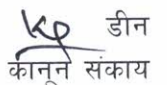 डीन
कानून संकाय